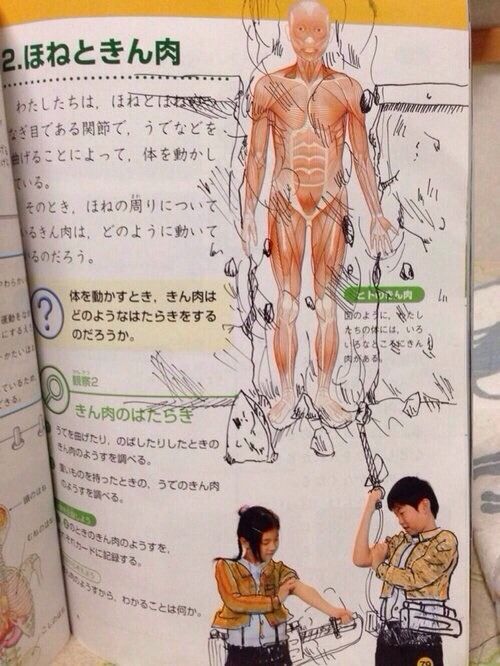 2.ほねときん肉
わたしたちは，ほねとほね
なぎ目である関節で，うでなどを
曲げることによって，体を動かし
ている。
そのとき，ほねの周りについて
いるきん肉は，どのように動いて
いるのだろう。
?
体を動かすとき，きん肉は
どのようなはたらきをする
のだろうか。
ヒトのきん肉
図のように，わたし
たちの体には，いろ
いろなところにきん
肉がある。
観察2
きん肉のはたらき
うでを曲げたり，のばしたりしたときの
きん肉のようすを調べる。
重いものを持ったときの，うでのきん肉
のようすを調べる。
のときのきん肉のようすを，
カードに記録する。
のようすから，わかることは何か。
79